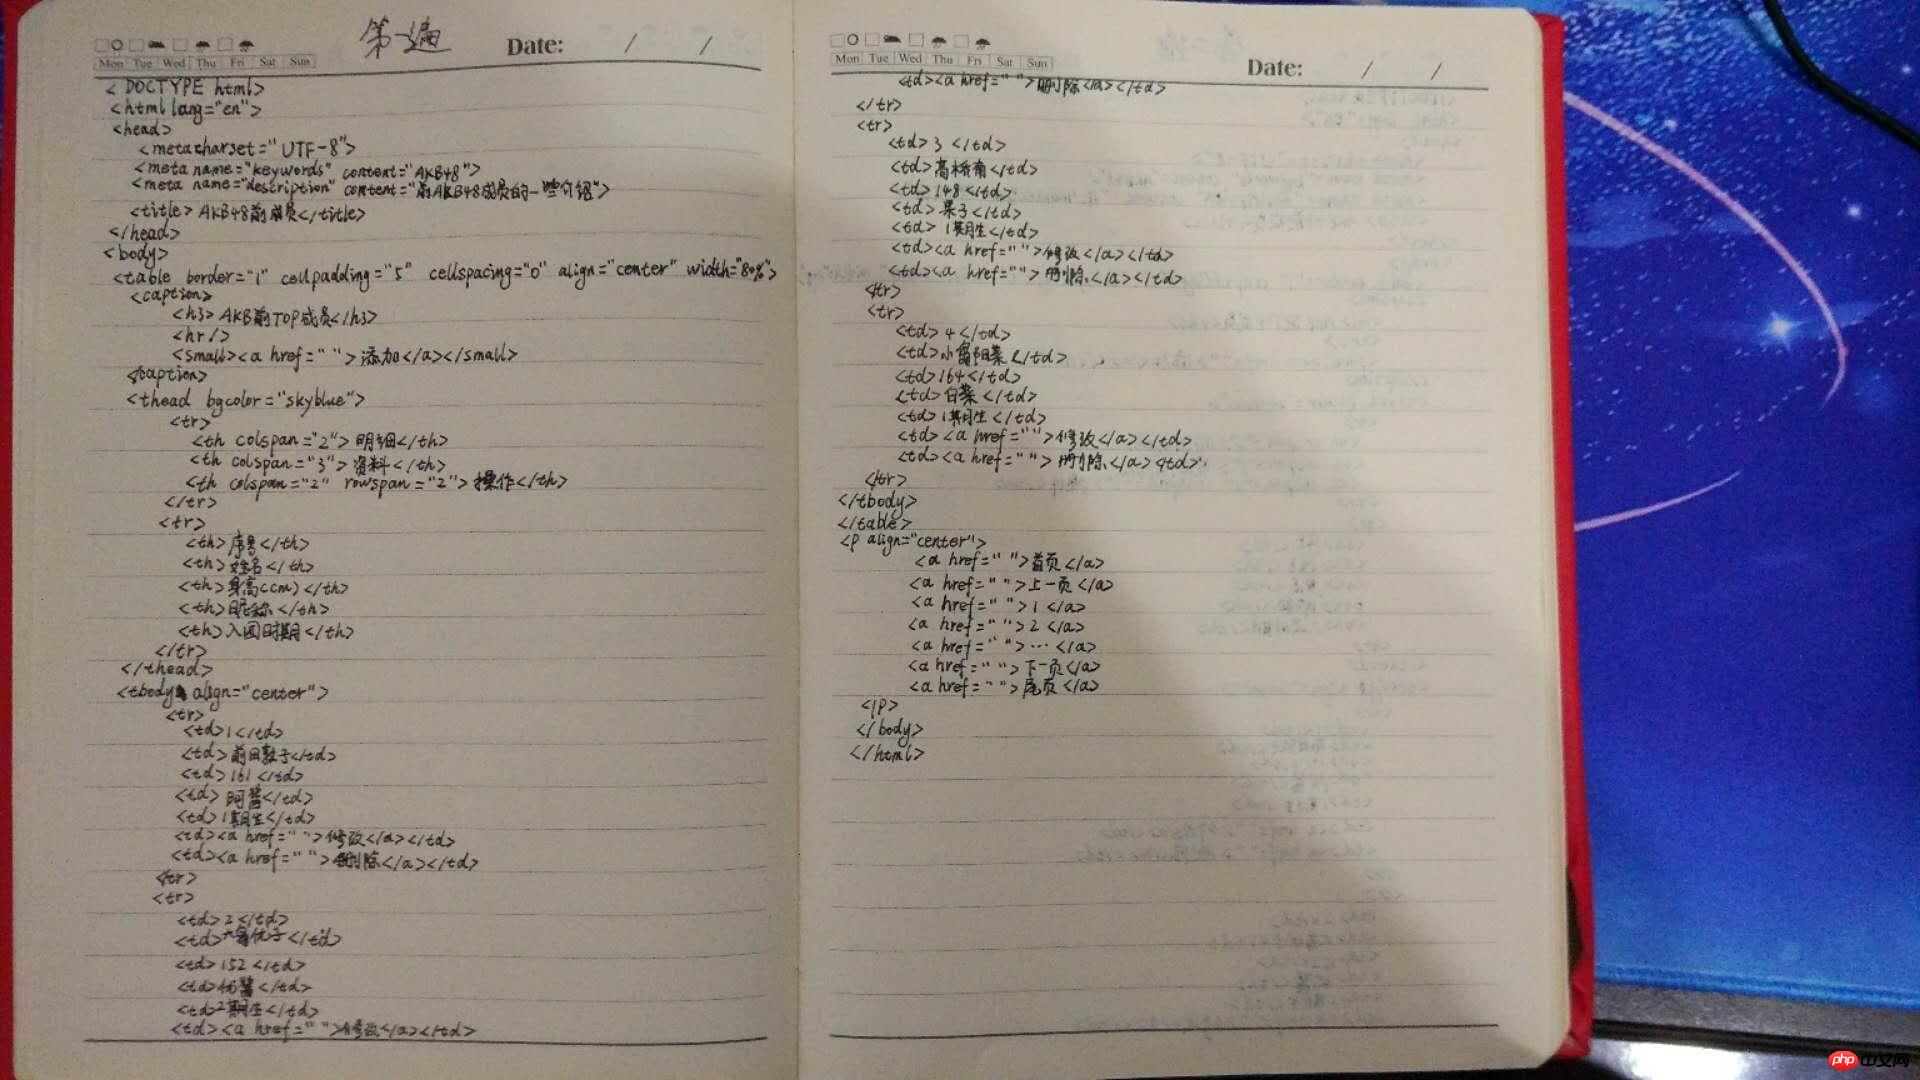 第一遍
Date: / /
Mon Tue Wed Thu Fri Sat Sun
< DOCTYPE html>
<html lang="en">
<head>
<meta charset="UTF-8">
<meta name="keywords" content="AKB48">
<meta name="description" content="前AKB48成员的一些介绍">
<title>AKB48前成员</title>
</head>
<body>
<table border="1" cellpadding="5" cellspacing="0" align="center" width="80%">
<caption>
<h3>AKB前TOP成员</h3>
<hr/>
<small><a href=" ">添加</a></small>
</caption>
<thead bgcolor="skyblue">
<tr>
<th colspan="2">明细</th>
<th colspan="3">资料</th>
<th colspan="2" rowspan="2">操作</th>
</tr>
<tr>
<th>序号</th>
<th>姓名</th>
<th>身高(cm)</th>
<th>昵称</th>
<th>入团时期</th>
</tr>
</thead>
<tbody align="center">
<tr>
<td>1</td>
<td>前田敦子</td>
<td>161</td>
<td>阿酱</td>
<td>1期生</td>
<td><a href=" ">修改</a></td>
<td><a href=" ">删除</a></td>
</tr>
<tr>
<td>2</td>
<td>大岛优子</td>
<td>152</td>
<td>优酱</td>
<td>2期生</td>
<td><a href=" ">修改</a></td>
Mon Tue Wed Thu Fri Sat Sun
Date: / /
<td><a href=" ">删除</a></td>
</tr>
<tr>
<td>3</td>
<td>高桥南</td>
<td>148</td>
<td>果子</td>
<td>1期生</td>
<td><a href="">修改</a></td>
<td><a href="">删除</a></td>
</tr>
<tr>
<td>4</td>
<td>小岛阳菜</td>
<td>164</td>
<td>白菜</td>
<td>1期生</td>
<td><a href="">修改</a></td>
<td><a href=" ">删除</a><td>
</tr>
</tbody>
</table>
<p align="center">
<a href=" ">首页</a>
<a href=" ">上一页</a>
<a href=" ">1</a>
<a href=" ">2</a>
<a href=" ">…</a>
<a href=" ">下一页</a>
<a href=" ">尾页</a>
</p>
</body>
</html>
php中文网